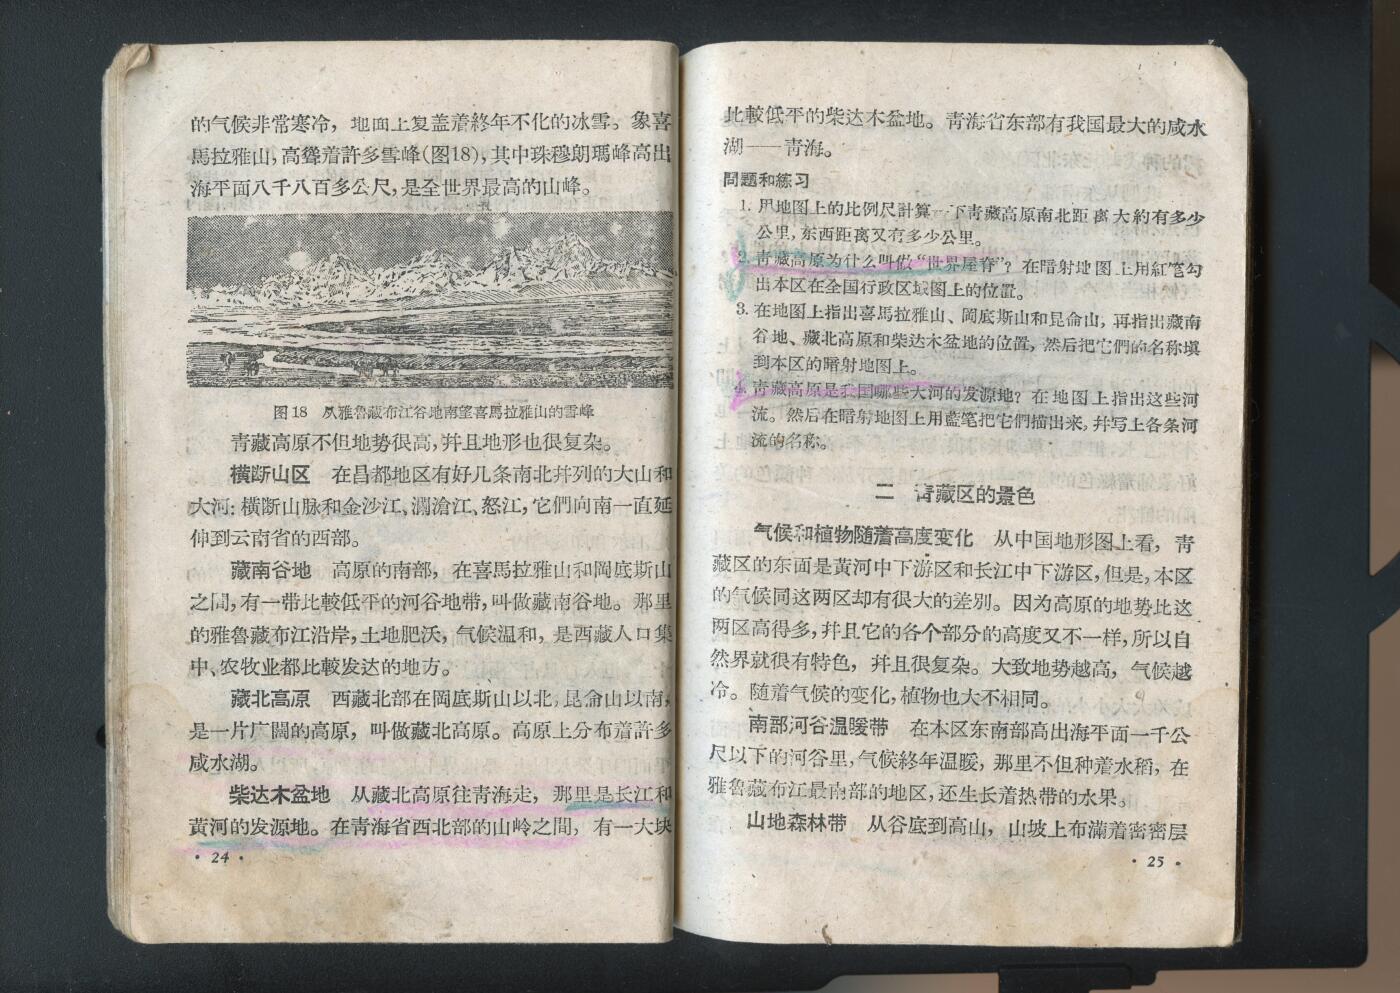 的气候非常寒冷，地面上复盖着終年不化的冰雪。象喜
馬拉雅山，高聳着許多雪峰(图18)，其中珠穆朗瑪峰高出
海平面八千八百多公尺，是全世界最高的山峰。
图18 从雅魯藏布江谷地南望喜馬拉雅山的雪峰
青藏高原不但地势很高，幷且地形也很复杂。
横断山区 在昌都地区有好几条南北幷列的大山和
大河：横断山脉和金沙江、瀾滄江、怒江，它們向南一直延
伸到云南省的西部。
藏南谷地 高原的南部，在喜馬拉雅山和岡底斯山
之間，有一带比較低平的河谷地带，叫做藏南谷地。那里
的雅魯藏布江沿岸，土地肥沃，气候温和，是西藏人口集
中、农牧业都比較发达的地方。
藏北高原 西藏北部在岡底斯山以北，昆侖山以南，
是一片广闊的高原，叫做藏北高原。高原上分布着許多
咸水湖。
柴达木盆地 从藏北高原往青海走，那里是长江和
黃河的发源地。在青海省西北部的山岭之間，有一大块
• 24 •
比較低平的柴达木盆地。青海省东部有我国最大的咸水
湖——青海。
問題和練习
1. 用地图上的比例尺計算一下青藏高原南北距离大約有多少
公里，东西距离又有多少公里。
2. 青藏高原为什么叫做“世界屋脊”？在暗射地图上用紅笔勾
出本区在全国行政区域图上的位置。
3. 在地图上指出喜馬拉雅山、岡底斯山和昆侖山，再指出藏南
谷地、藏北高原和柴达木盆地的位置，然后把它們的名称填
到本区的暗射地图上。
4. 青藏高原是我国哪些大河的发源地？在地图上指出这些河
流。然后在暗射地图上用藍笔把它們描出来，幷写上各条河
流的名称。
二 青藏区的景色
气候和植物随着高度变化 从中国地形图上看，青
藏区的东面是黃河中下游区和长江中下游区，但是，本区
的气候同这两区却有很大的差别。因为高原的地势比这
两区高得多，幷且它的各个部分的高度又不一样，所以自
然界就很有特色，幷且很复杂。大致地势越高，气候越
冷。随着气候的变化，植物也大不相同。
南部河谷温暖带 在本区东南部高出海平面一千公
尺以下的河谷里，气候終年温暖，那里不但种着水稻，在
雅魯藏布江最南部的地区，还生长着热带的水果。
山地森林带 从谷底到高山，山坡上布滿着密密层
• 25 •